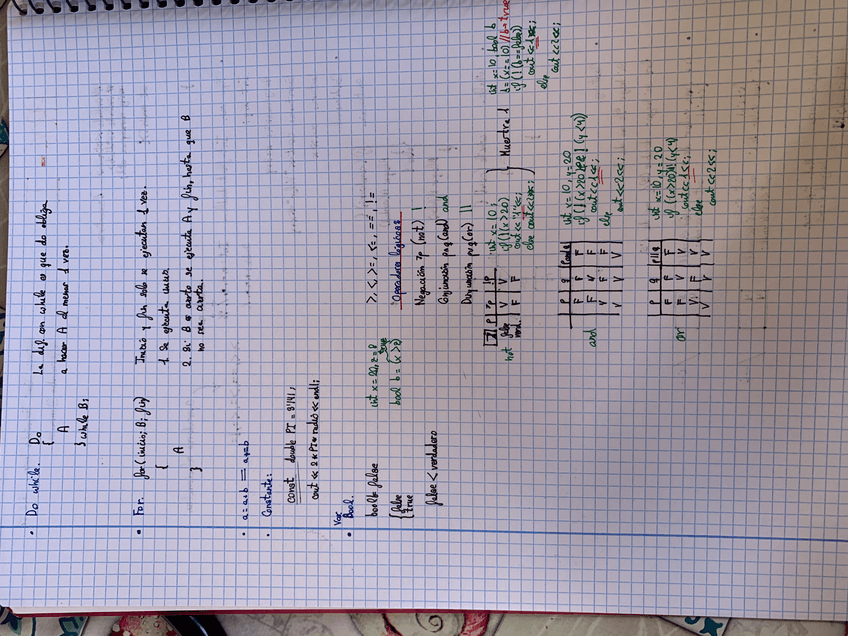 • Do while. Do
{
A
} while B;
La dif. con while es que do obliga
a hacer A al menos 1 vez.
• For. for(inicio; B; fin)
{
A
}
Inicio y fin solo se ejecutan 1 vez.
1. Se ejecuta inicio.
2. Si B es cierto se ejecuta A y fin, hasta que B
no sea cierta.
• a = a+b == a+=b
• Constante:
const double PI = 3'141;
cout << 2*PI* radio << endl;
• Var
Bool.
bool b false
{ false
true
false < verdadero
int x=22, z=8
true
bool b = (x > z)
>, <, >=, <=, ==, !=
Operadores lógicos
Negación ¬p (not) !
Conjunción p∧q (and) and
Disyunción p∨q (or) ||
p ¬p !p
false V V
verd. F F
not
int x=10;
if (!(x>20)
cout << "1" <<;
else cout <<2<<;
} Muestra 1
int x=10; bool b
b = (x==10) // b=true
if (!(b==false))
cout <<1<<;
else
cout <<2<<;
p q p and q
F F F
F V F
V F F
V V V
and
int x=10, y=20
if (!(x>20) && !(y<4))
cout <<1<<;
else
cout <<2<<;
p q p||q
F F F
F V V
V F V
V V V
or
int x=10, y=20
if ((x>20)||!(y<4)
cout <<1<<;
else
cout <<2<<;